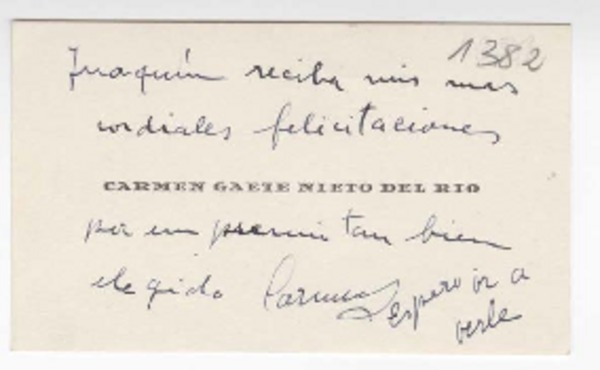 1382
Joaquín reciba mis mas
cordiales felicitaciones
CARMEN GAETE NIETO DEL RIO
por un premio tan bien
elegido Carmen
Espero ir a
verle